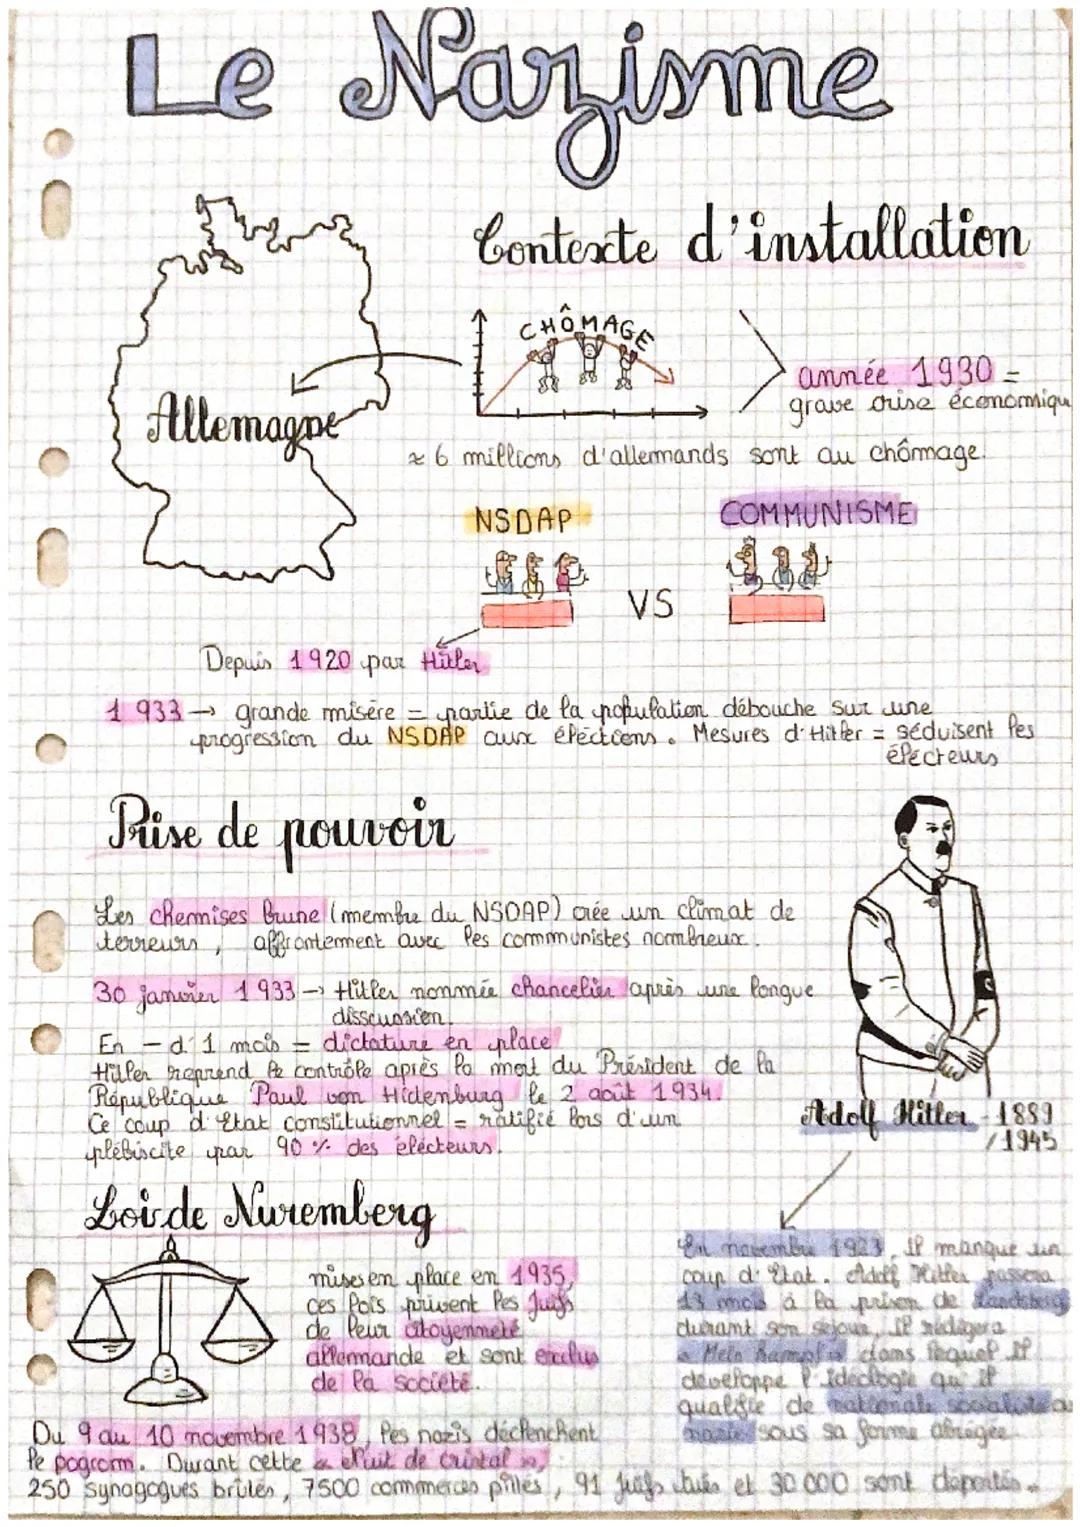 Le Nazisme
Contexte d'installation
CHÔMAGE
année 1930 =
grave crise économiqu
Allemagne
≈ 6 millions d'allemands sont au chômage.
NSDAP
COMMUNISME
VS
Depuis 1920 par Hitler
1 933 → grande misère = partie de la population débouche sur une
progression du NSDAP aux éléctions. Mesures d'Hitler = séduisent les
élécteurs
Prise de pouvoir
Les chemises brune (membre du NSDAP) crée un climat de
terreurs, affrontement avec les communistes nombreux.
30 janvier 1 933 → Hitler nommée chancelier après une longue
disscussion
En - d'1 mois = dictature en place
Hitler reprend le contrôle après la mort du Président de la
République Paul von Hidenburg le 2 août 1934.
Ce coup d'Etat constitutionnel = ratifié lors d'un
plébiscite par 90 % des élécteurs.
Adolf Hitler - 1889
/1945
Loi de Nuremberg
mises en place en 1935,
ces lois privent les Juifs
de leur citoyenneté
allemande et sont exclus
de la société.
En novembre 1923, il manque un
coup d'Etat. Adolf Hitler passera
13 mois à la prison de Landsberg
durant son séjour, il rédigera
« Mein Kampf » dans lequel il
développe l'idéologie qu'il
qualifie de nationale socialiste
nazie sous sa forme abrégée
Du 9 au 10 novembre 1938, les nazis déclenchent
le pogrom. Durant cette « Nuit de cristal »,
250 synagogues brûlés, 7500 commerces pillés, 91 Juifs tués et 30 000 sont déportés.